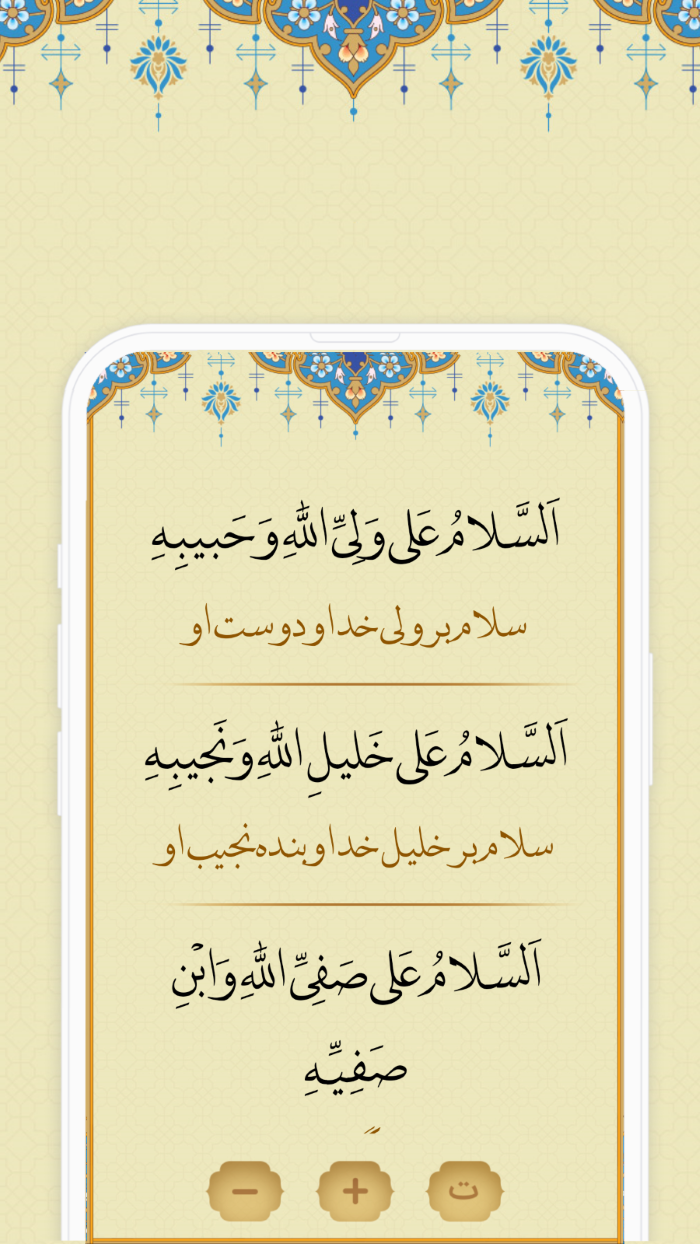 اَلسَّلامُ عَلی وَلِیِّ اللهِ وَ حَبیبِهِ
سلام بر ولی خدا و دوست او
اَلسَّلامُ عَلی خَلیلِ اللهِ وَ نَجیبِهِ
سلام بر خلیل خدا و بنده نجیب او
اَلسَّلامُ عَلی صَفِیِّ اللهِ وَ ابْنِ
صَفِیِّهِ
− + ت